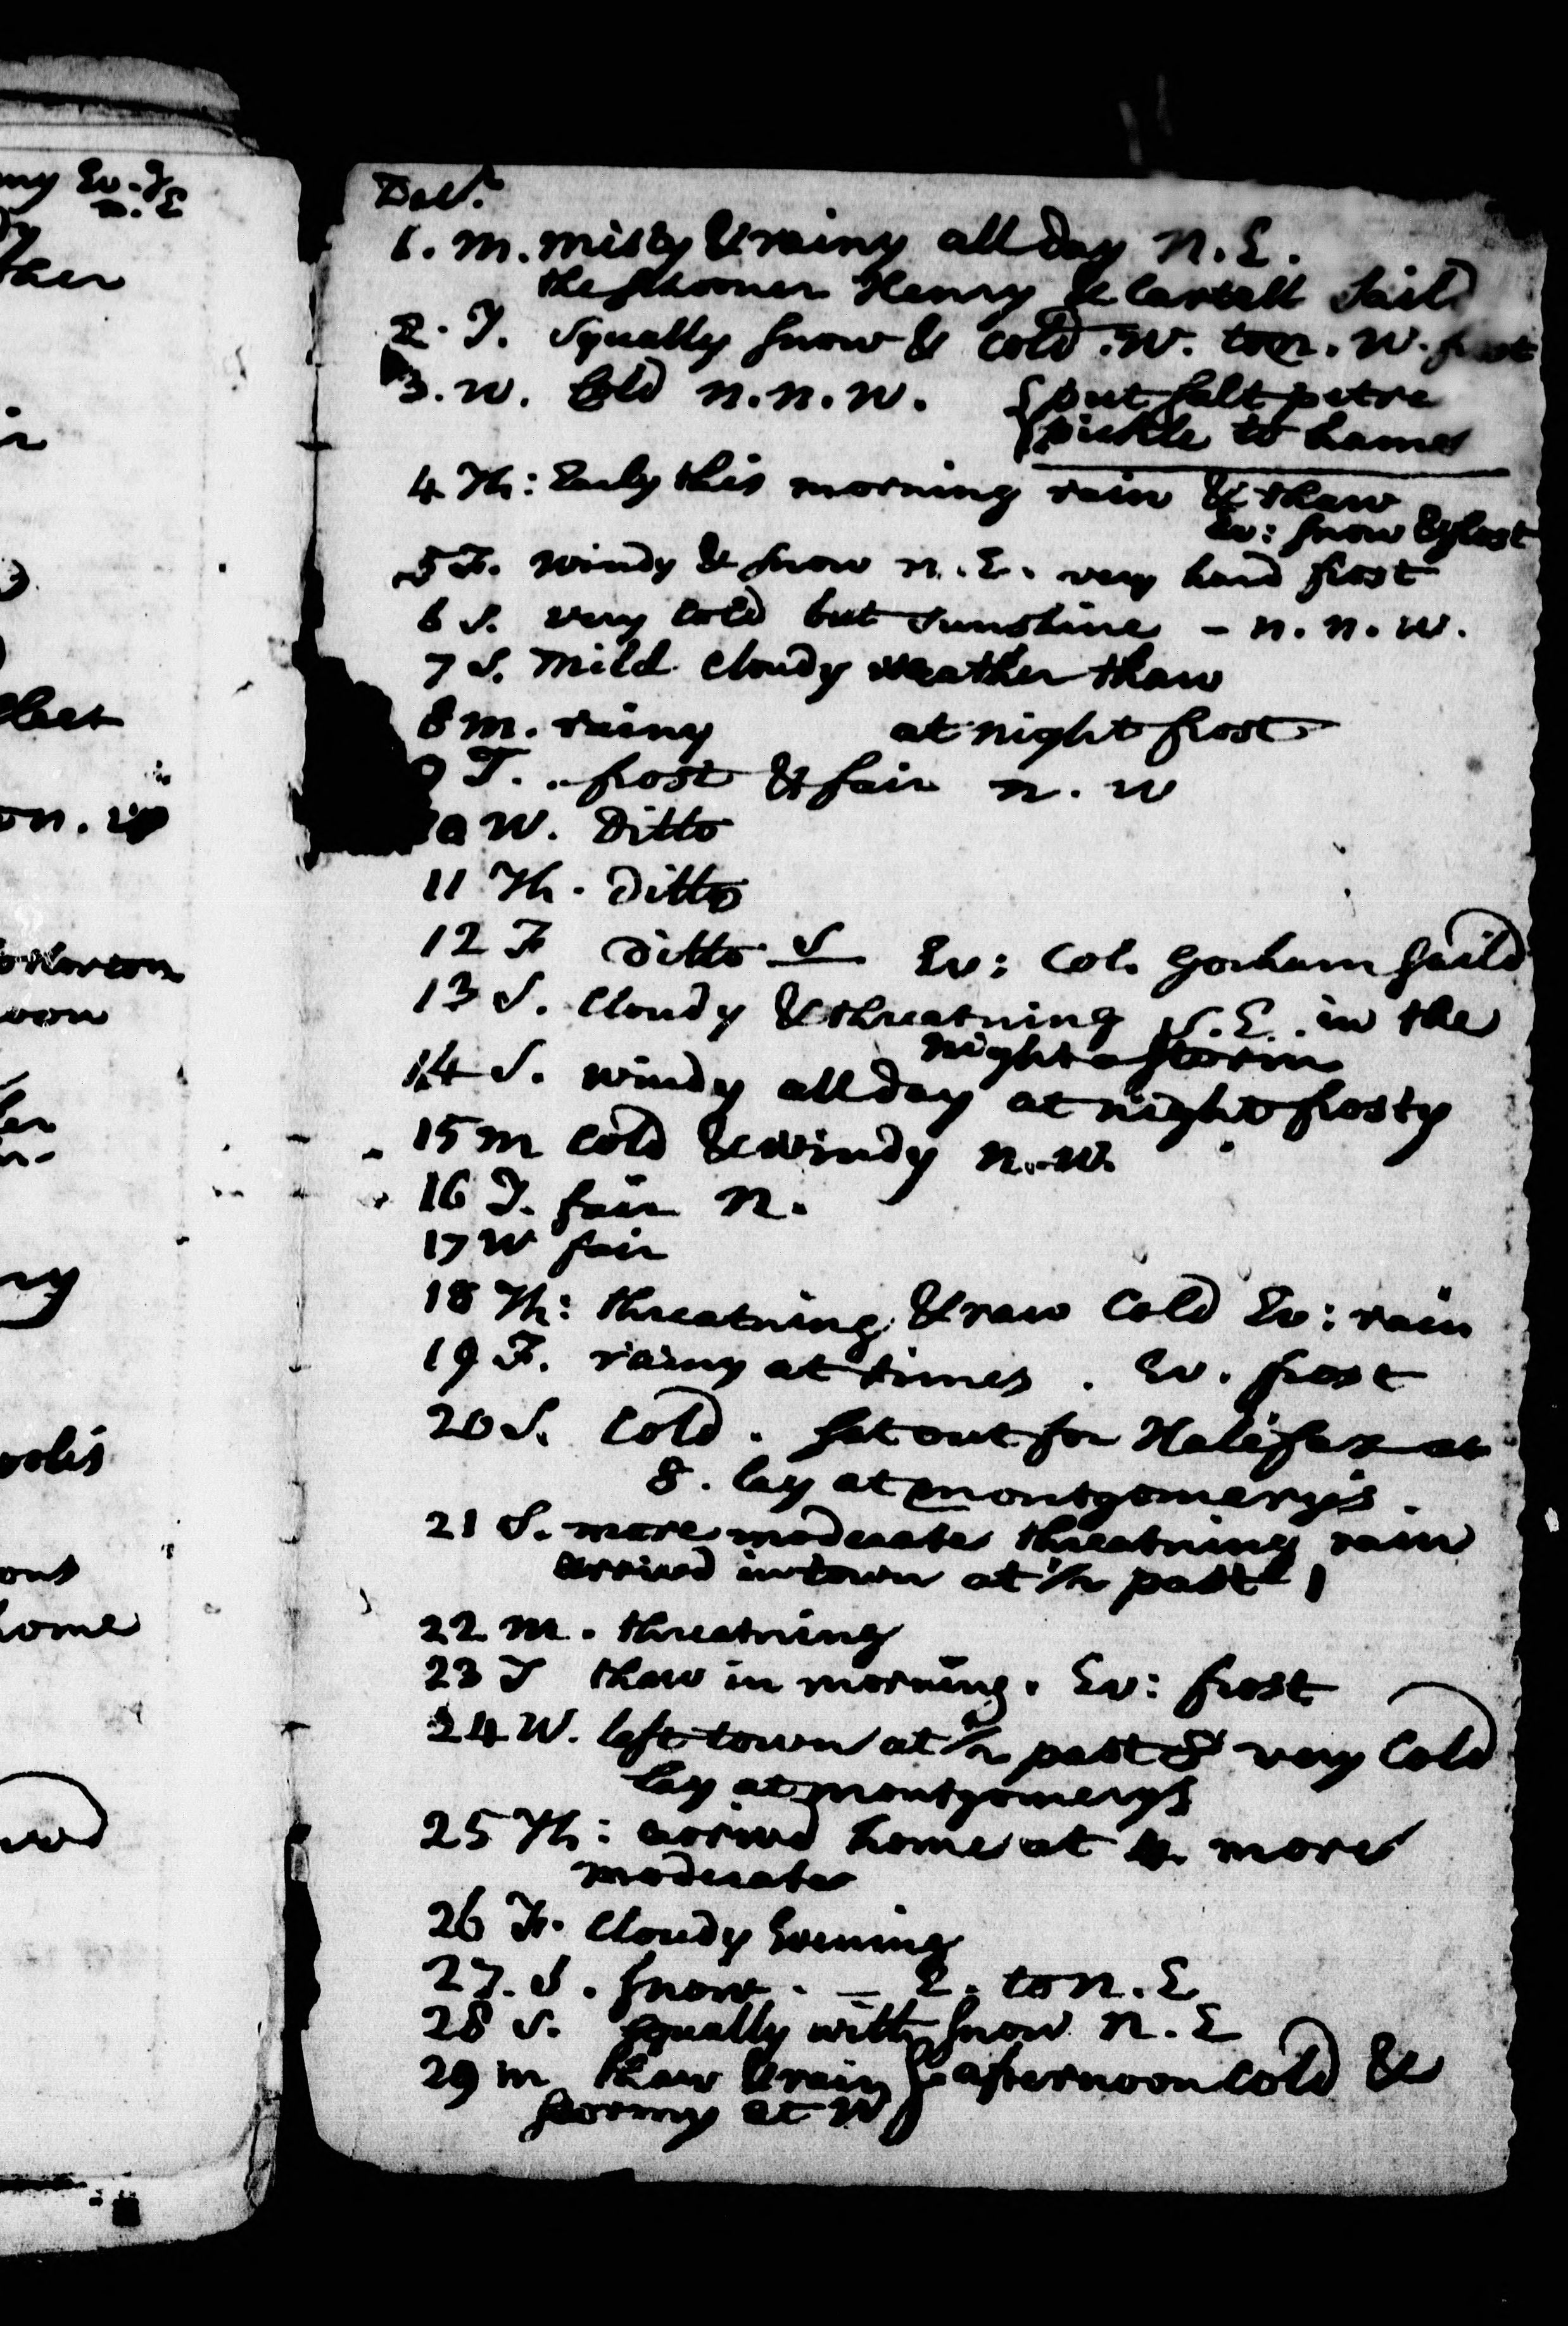 ny Ev. F
n. E
ther
Norton
oon
ny
polis
home
Decr.
1. M. misty & rainy all day N.E.
the schooner Henry & Cartell Saild
2. T. Squally snow & cold. W. to N. W. frost
3. W. Cold N.N.W. { put salt petre
{ pickle to hams
4 Th: Early this morning rain & thaw
Ev: snow &
5 F. windy & snow N.E. very hard frost
6 S. very cold but sunshine – N.N.W.
7 S. Mild Cloudy weather thaw
8 M. rainy at night frost
9 T. .. frost & fair N. W
10 W. Ditto
11 Th. Ditto
12 F Ditto S Ev: Col. Gorham saild
13 S. Cloudy & threatning S.E. in the
night a storm
14 S. windy all day at night frosty
15 M cold & windy N.W.
16 T. fair N.
17 W fair
18 Th: threatning & raw Cold Ev: rain
19 F. rainy at times . Ev. frost
20 S. Cold . Set out for Halifax at
8 . lay at Montgomery's .
21 S. more moderate threatning rain
arrived in town at 1/2 past 1
22 M. threatning
23 T thaw in morning. Ev: frost
24 W. left town at 1/2 past 8 very Cold
lay at Montgomerys
25 Th: arrived home at 4. more
moderate
26 F. Cloudy Evening
27. S. snow. – E. to N.E
28 S. Squally with snow N.E
29 M thaw & rain } afternoon cold &
stormy at W }